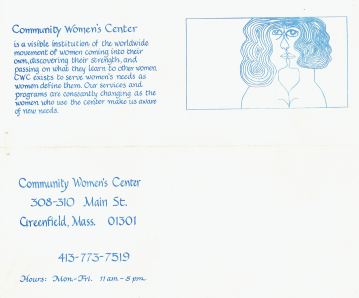 Community Women's Center
is a visible institution of the worldwide
movement of women coming into their
own, discovering their strength, and
passing on what they learn to other women.
CWC exists to serve women's needs as
women define them. Our services and
programs are constantly changing as the
women who use the center make us aware
of new needs.
Community Women's Center
308-310 Main St.
Greenfield, Mass. 01301
413-773-7519
Hours: Mon.-Fri. 11 am - 5 pm.